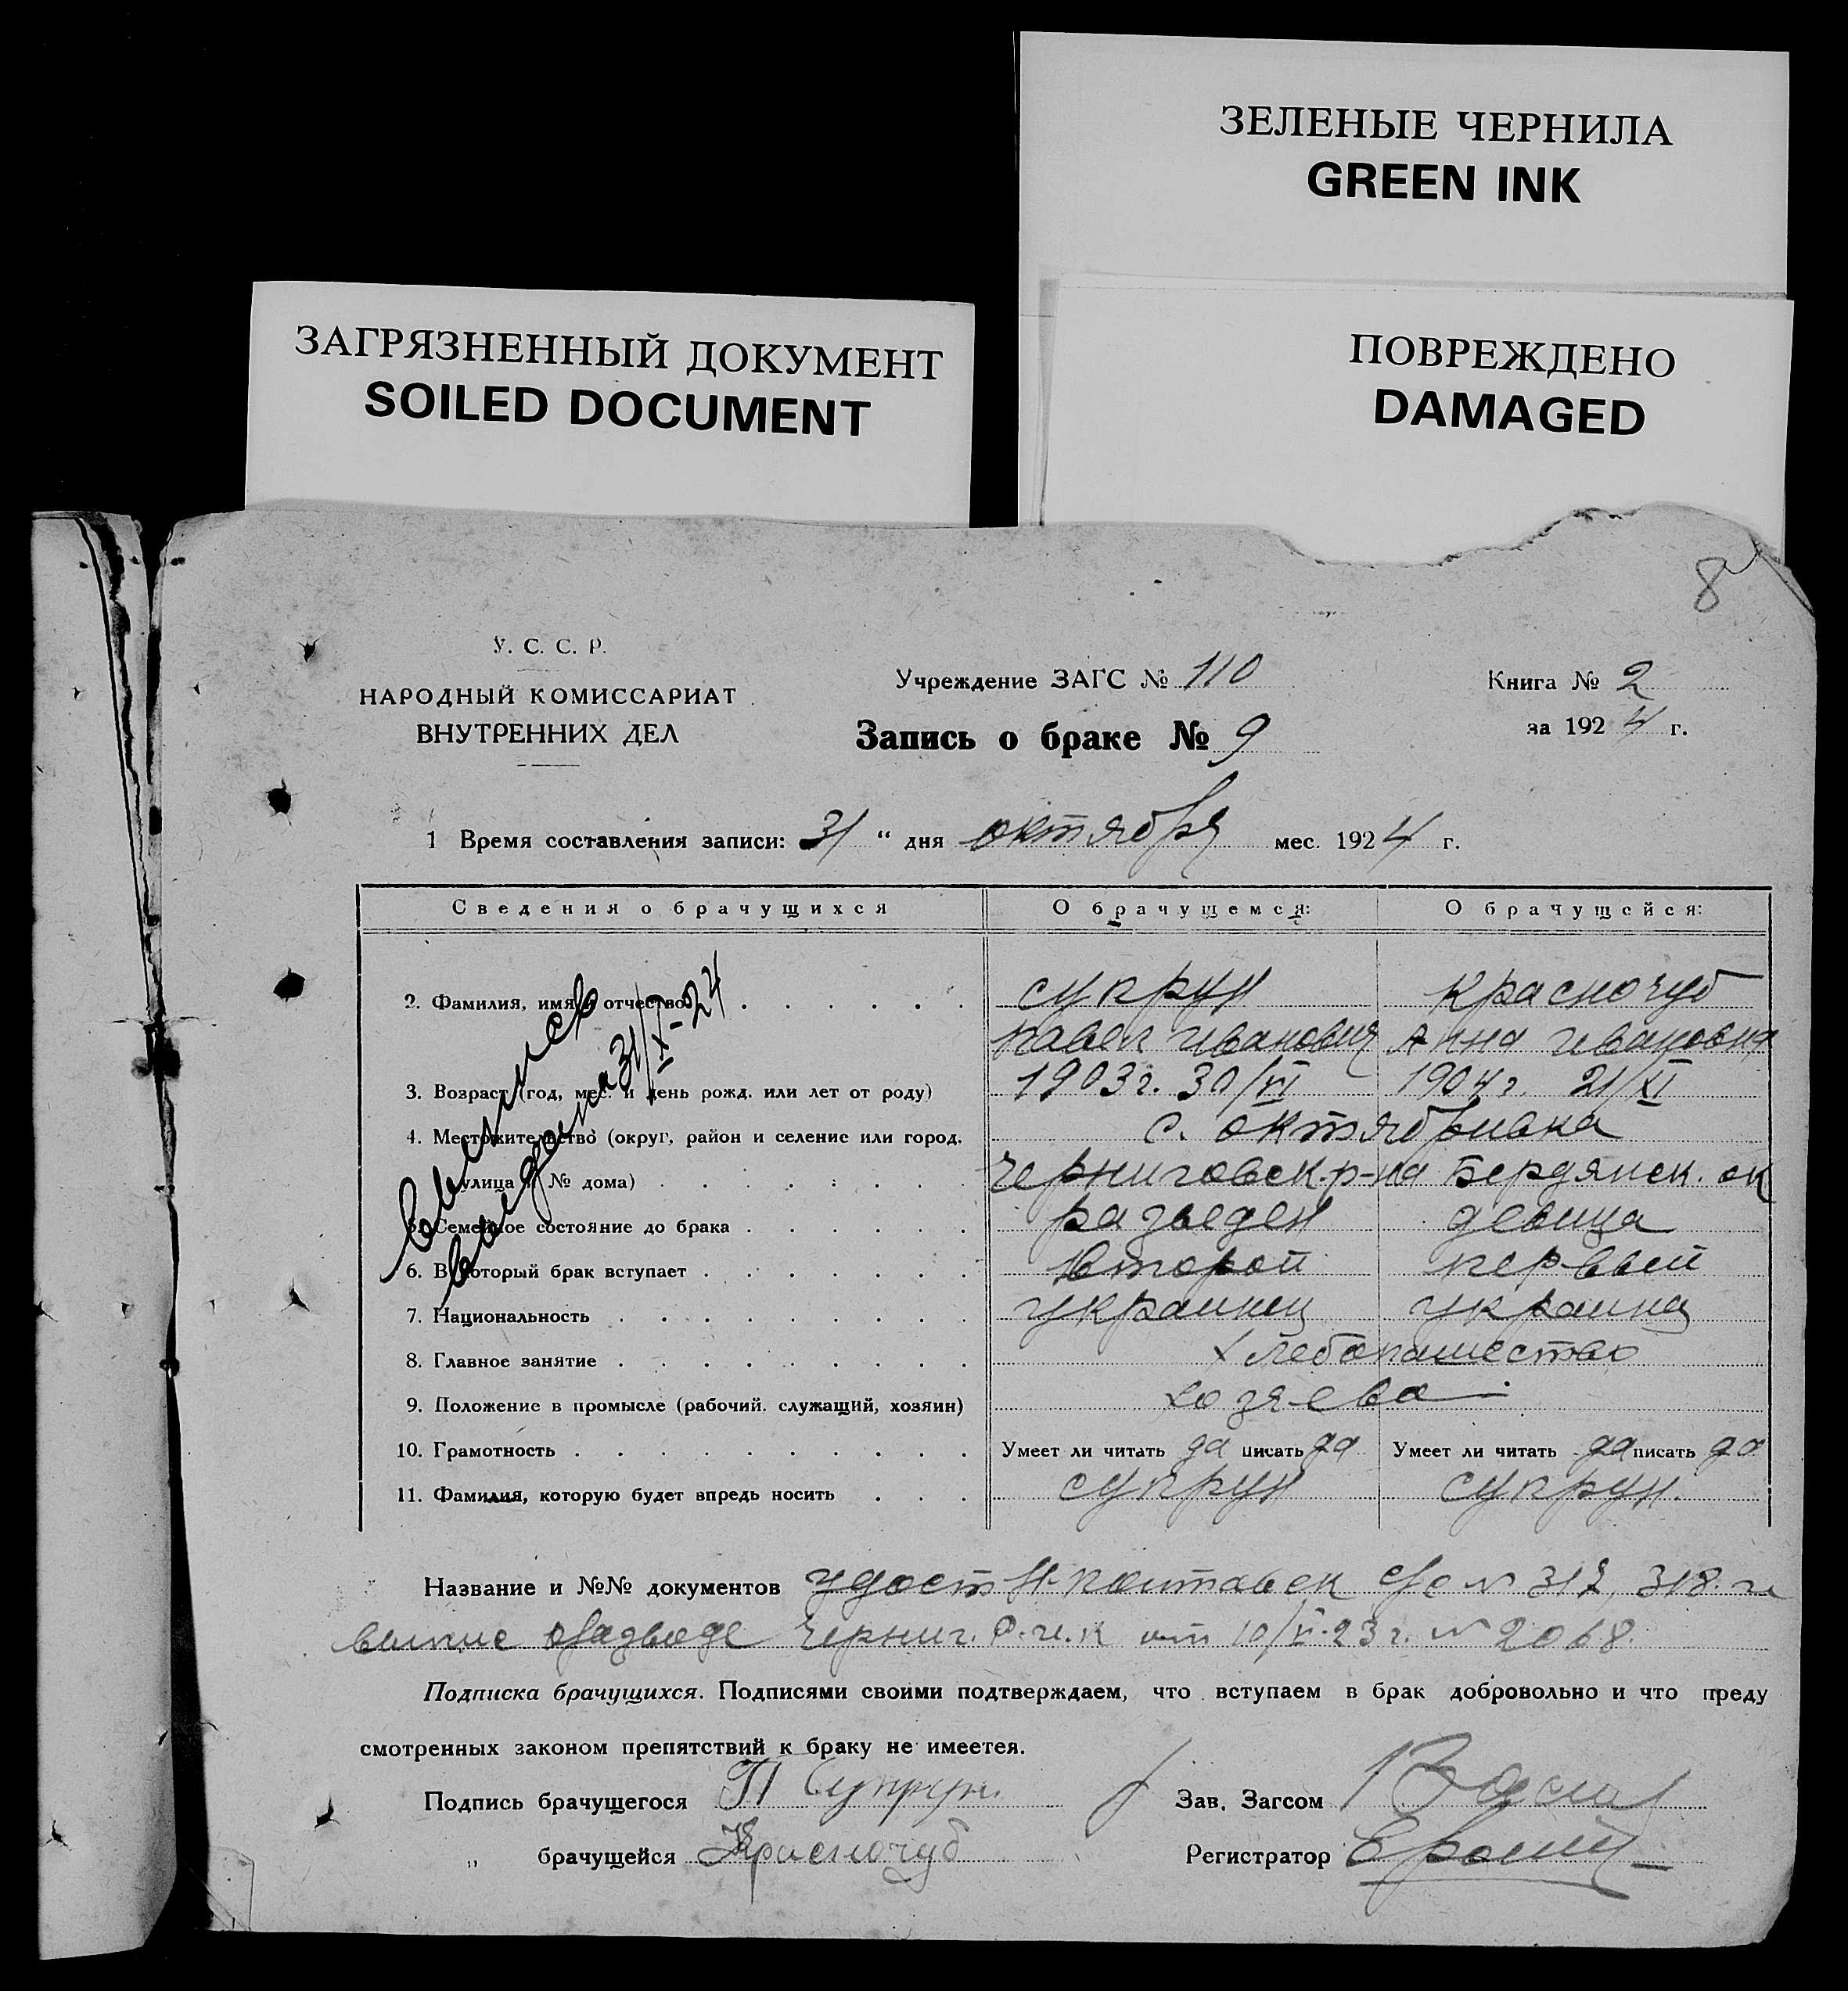 ЗЕЛЕНЫЕ ЧЕРНИЛА
GREEN INK
ЗАГРЯЗНЕННЫЙ ДОКУМЕНТ
SOILED DOCUMENT
ПОВРЕЖДЕНО
DAMAGED
8
У. С. С. Р.
НАРОДНЫЙ КОМИССАРИАТ
ВНУТРЕННИХ ДЕЛ
Учреждение ЗАГС № 110
Запись о браке № 9
Книга № 2
за 1924 г.
1 Время составления записи: 31 " дня октября мес. 1924 г.
Сведения о брачущихся О брачущемся: О брачущейся:
2. Фамилия, имя и отчество . . . . . . Супрун Красночуб
Павел Иванович Анна Ивановна
3. Возраст (год, мес. и день рожд. или лет от роду) 1903 г. 30/VI 1904 г. 21/XI
4. Местожительство (округ, район и селение или город, с. Октябрьвка
улица и № дома) . . . . . . . . Черниговск. р-на Бердянск. ок
5. Семейное состояние до брака . . . . . . разведен девица
6. В который брак вступает . . . . . . . второй первый
7. Национальность . . . . . . . . . украинец украинка
8. Главное занятие . . . . . . . . . хлебопашество
9. Положение в промысле (рабочий, служащий, хозяин) хозяева
10. Грамотность . . . . . . . . . . Умеет ли читать да писать да Умеет ли читать да писать да
11. Фамилия, которую будет впредь носить . . . Супрун Супрун.
Выпись
выдана 31/X-24
Название и №№ документов удост Н-Полтавск с/с № 317, 318. и
выпис о разводе Черниг. Р.И.К от 10/ 23 г. № 2068.
Подписка брачущихся. Подписями своими подтверждаем, что вступаем в брак добровольно и что преду
смотренных законом препятствий к браку не имеется.
Подпись брачущегося П Супрун. Зав. Загсом
„ брачущейся Красночуб Регистратор